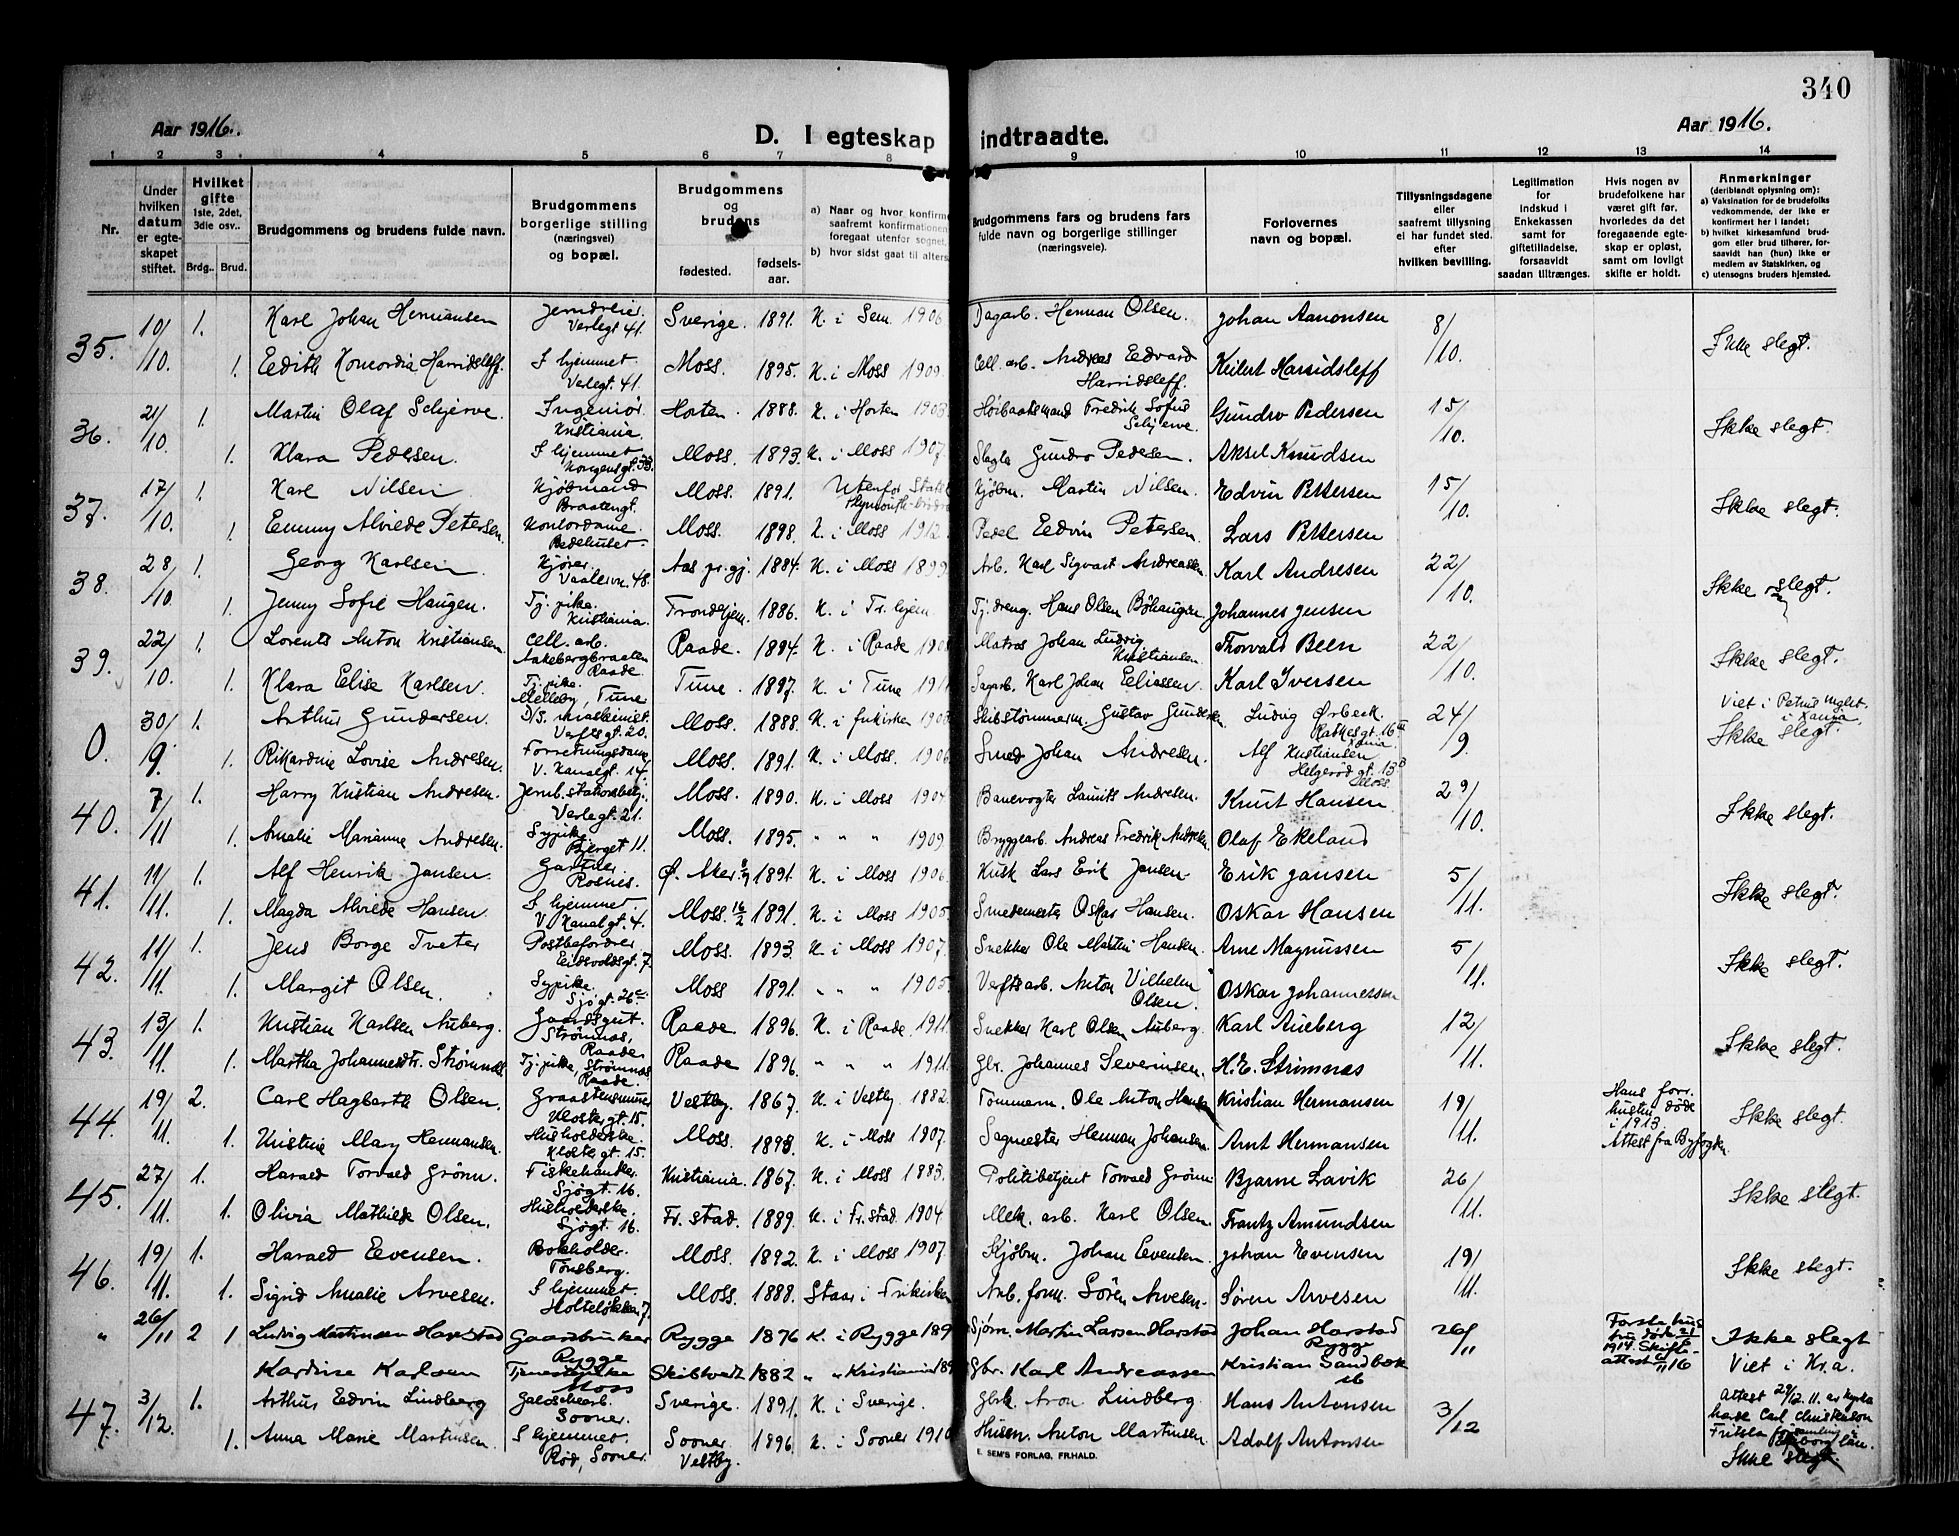 340
Aar 1916.
Aar 1916.
D. I egteskap indtraadte.
1 2 3 4 5 6 7 8 9 10 11 12 13 14
Nr.
Under hvilken datum er egteskapet stiftet.
Hvilket gifte 1ste, 2det, 3die osv..
Brdg.. Brud.
Brudgommens og brudens fulde navn.
Brudgommens borgerlige stilling (næringsvei) og bopæl.
Brudgommens og brudens
fødested. fødsels-aar.
a) Naar og hvor konfirme
saafremt konfirmationen
foregaat utenfor sognet,
b) hvor sidst gaat til alters
Brudgommens fars og brudens fars fulde navn og borgerlige stillinger (næringsveie).
Forlovernes navn og bopæl.
Tillysningsdagene eller saafremt tillysning ei har fundet sted, efter hvilken bevilling.
Legitimation for indskud i Enkekassen samt for giftetilladelse, forsaavidt saadan tiltrænges.
Hvis nogen av brudefolkene har været gift før, hvorledes da det foregaaende egteskap er opløst, samt om lovligt skifte er holdt.
Anmerkninger
(deriblandt oplysning om):
a) Vaksination for de brudefolks vedkommende, der ikke er konfirmert her i landet;
b) hvilket kirkesamfund brudgom eller brud tilhører, forsaavidt han (hun) ikke er medlem av Statskirken, og
c) utensogns bruders hjemsted.
35. 10/10. 1. Karl Johan Hermansen Verlegt 41. Sverige. 1891. K. i Sem. 1906 Dagarb. Herman Olsen. Johan Aanonsen 8/10. Ikke slegt.
1. Edith Koncordia Harridsleff. I hjemmet Verlegt. 41. Moss. 1895. K. i Moss 1909. Cell. arb. Andreas Edvard Harridsleff. Keilert Harridsleff
36. 21/10. 1. Martin Olaf Schjerve. Ingeniør. Kristiania. Horten. 1888. K. i Horten 1903 Høibaatsmand Fredrik Sofus Schjerve. Gundro Pedersen 15/10. Ikke slegt.
1. Klara Pedersen. I hjemmet Kongensgt. 33. Moss. 1893. K. i Moss 1907. Gundro Pedersen. Aksel Knudsen
37. 17/10. 1. Karl Nilsen Kjøbmand Braatengt. Moss. 1891. Utenfor Statsk Plymouth-brødre Kjøbm. Martin Nilsen. Edvin Pettersen 15/10. Ikke slegt.
1. Emmy Alviede Petersen. Kontordame. Bedehuset. Moss. 1898. K. i Moss 1912. Pedel Edvin Petersen. Lars Pettersen
38. 28/10. 1. Georg Karlsen. Kjører. Vaalervn. 48. Aas pr.gj. 1884. K. i Moss 1899 Arb. Karl Sigvart Andreassen Karl Andresen 22/10. Ikke slegt.
1. Jenny Sofie Haugen. Tj. pike. Kristiania. Trondhjem. 1886. K. i Tr. hjem Tj. dreng. Hans Olsen Bøhaugen Johannes Jensen
39. 22/10. 1. Lorents Anton Kristiansen. Cell. arb. Aakebergbraaten Raade. Raade. 1894. K. i Raade 1908 Matros Johan Ludvig Kristiansen. Thorvald Been 22/10. Ikke slegt.
1. Klara Elise Karlsen. Tj. pike. Melleby, Tune Tune. 1897. K. i Tune 1911 Sagarb. Karl Johan Eliassen Karl Iversen
0. 30/9. 1. Arthur Gundersen. D/S. maskinist. Verftsgt. 20. Moss. 1888. K. i frikirken 1903. Skibstømmerm. Gustav Gundersen. Ludvig Ørbeck. Rathkesgt. 16 24/9. Viet i Petrus i Kania. Ikke slegt.
1. Rikardine Lovise Andresen. Forretningsdame V. Kanalgt. 14. Moss. 1891. K. i Moss. 1906 Smed Johan Andresen. Alf Kristiansen Helgerødgt. 13 B Moss.
40. 7/11 1. Harry Kristian Andresen. Jernb. stationsbetj. Verlegt. 21. Moss. 1890. K. i Moss 1904 Banevogter Laurits Andresen. Knut Hansen 29/10. Ikke slegt.
1. Amalie Marianne Andresen. Sypike Bjerget 11. Moss. 1895. " " " 1909. Bryggearb. Andreas Fredrik Andresen Olaf Ekeland
41. 11/11. 1. Alf Henrik Jansen. Gartner Rosnes. Ø. Aker 1891. K. i Moss 1906. Kusk Lars Erik Jensen. Erik Jansen 5/11. Ikke slegt.
1. Magda Alviede Hansen. I hjemmet V. Kanalgt. 4. Moss. 16/2 1891. K. i Moss 1905. Smedemester Oskar Hansen. Oskar Hansen
42. 11/11. 1. Jens Borge Tveter Postbefordrer Eidsvoldsgt. 7. Moss. 1893. K. i Moss 1907. Snekker Ole Martin Hansen. Arne Magnussen 5/11. Ikke slegt.
1. Margit Olsen. Sypike. Sjøgt. 26 c. Moss 1891. " " " 1905. Verftsarb. Anton Vilhelm Olsen. Oskar Johannessen
43. 13/11. 1. Kristian Karlsen Auberg. Gaardsgut. Strømnes, Raade. Raade 1896. K. i Raade. 1911. Snekker Karl Olsen Auberg. Karl Aueberg 12/11. Ikke slegt.
1. Martha Johannesdtr. Strømnæs Tj. pike, Strømnæs Raade. Raade 1896. " " " 1911. Gbr. Johannes Severinsen. H. E. Strømnæs
44. 19/11. 2. Carl Hagbarth Olsen. Graastensminer Klostergt. 15. Vestby. 1867. K. i Vestby. 1882. Tømmerm. Ole Anton Hansen Kristian Hermansen 19/11. Hans forr. hustru døde i 1913. Attest fra Byfogden Ikke slegt.
1. Kristine Mary Hermansen. Husholderske. Klostergt. 15. Moss. 1893. K. i Moss 1907. Sagmester Herman Johansen. Arnt Hermansen
45. 27/11. 1. Harald Torvald Grønn. Fiskehandler. Sjøgt. 16. Kristiania. 1867. K. i Moss 1883. Politibetjent Torvald Grønn Bjarne Lavik 26/11. Ikke slegt.
1. Olivia Mathilde Olsen. Husholderske. Sjøgt. 16. Fr. stad. 1889. K. i Fr. stad. 1904 Mek. arb. Karl Olsen. Frantz Amundsen
46. 19/11. 1. Harald Evensen. Bokholder. Tønsberg. Moss. 1892. K. i Moss 1907. Kjøbm. Johan Evensen. Johan Evensen 19/11. Ikke slegt.
1. Sigrid Amalie Arvesen. I hjemmet. Holteløkken 7. Moss. 1888. Staar i Frikirken Arb. form. Sören Arvesen. Søren Arvesen
" 26/11 2 1 Ludvig Martinsen Harstad Gaardbruker Rygge Rygge 1876 K. i Rygge 189 Sjøm. Martin Larsen Harstad Johan Harstad Rygge 26/11 Første hustru døde 21 1914. Skifte-attest 11 16 Ikke slegt Viet i Kr.a.
Kardine Karlsen Tjenestepike Moss Skibtvedt 1882 " " Kristiania 189 Gbr. Karl Andreassen Kristian Sandbæk
47. 3/12. 1. Arthur Edvin Lindberg Galoschearb. Sooner. Sverige. 1891. K. i Sverige. Gbr. Aron Lindberg. Hans Antonsen 3/12 Attest 29/12. 11. av Kyrkoherde Carl Christenson Fritsla forsamling län. Ikke slegt.
1. Anna Marie Martinsen. I hjemmet. Rød, Sooner. Sooner Vestby. 1896. K. i Sooner 1910 Husm. Anton Martinsen Adolf Antonsen
E. SEM'S FORLAG, FR.HALD.